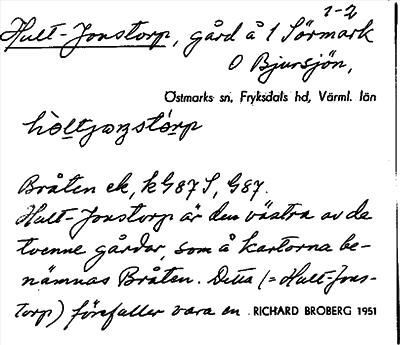 1-2
Hult-Jonstorp, gård å 1 Sörmark
O Bjursjön,
Östmarks sn, Fryksdals hd, Värml. län
Bråten ek, kG87S, G87.
Hult-Jonstorp är den västra av de
tvenne gårdar, som å kartorna be-
nämnas Bråten. Detta (= Hult-Jons-
torp) förefaller vara en RICHARD BROBERG 1951